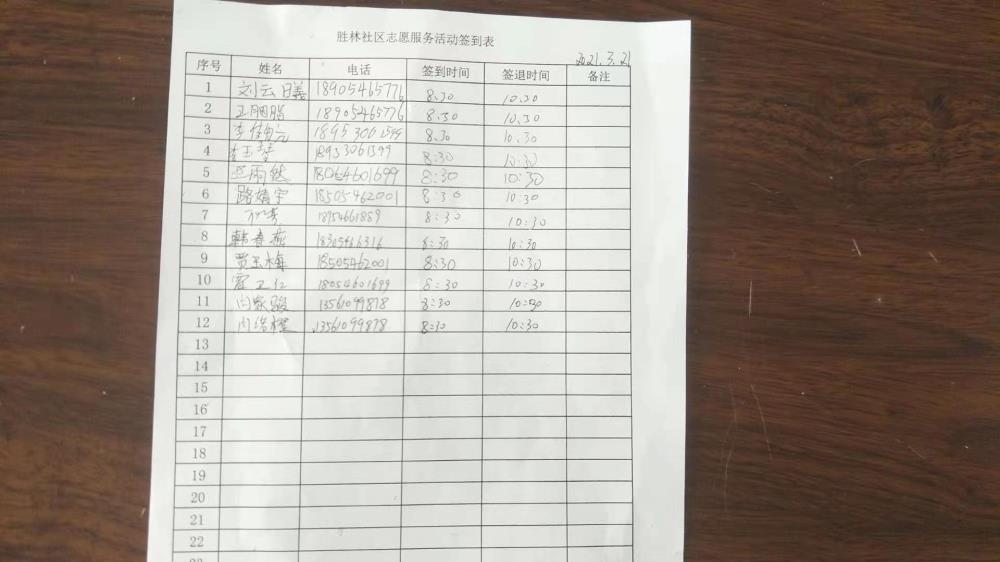 胜林社区志愿服务活动签到表
2021.3.21
序号 姓名 电话 签到时间 签退时间 备注
1 刘云曦 18905465776 8.30 10.30
2 王胭脂 18905465776 8.30 10.30
3 18953061599 8.30 10.30
4 8:30 10:30
5 18064601699 8:30 10:30
6 路婧宇 18505462001 8:30 10:30
7 18954661889 8:30 10:30
8 韩春燕 18305466316 8:30 10:30
9 贾玉梅 18505462001 8:30 10:30
10 18054601699 8:30 10:30
11 13561099878 8:30 10:30
12 13561099878 8:30 10:30
13
14
15
16
17
18
19
20
21
22